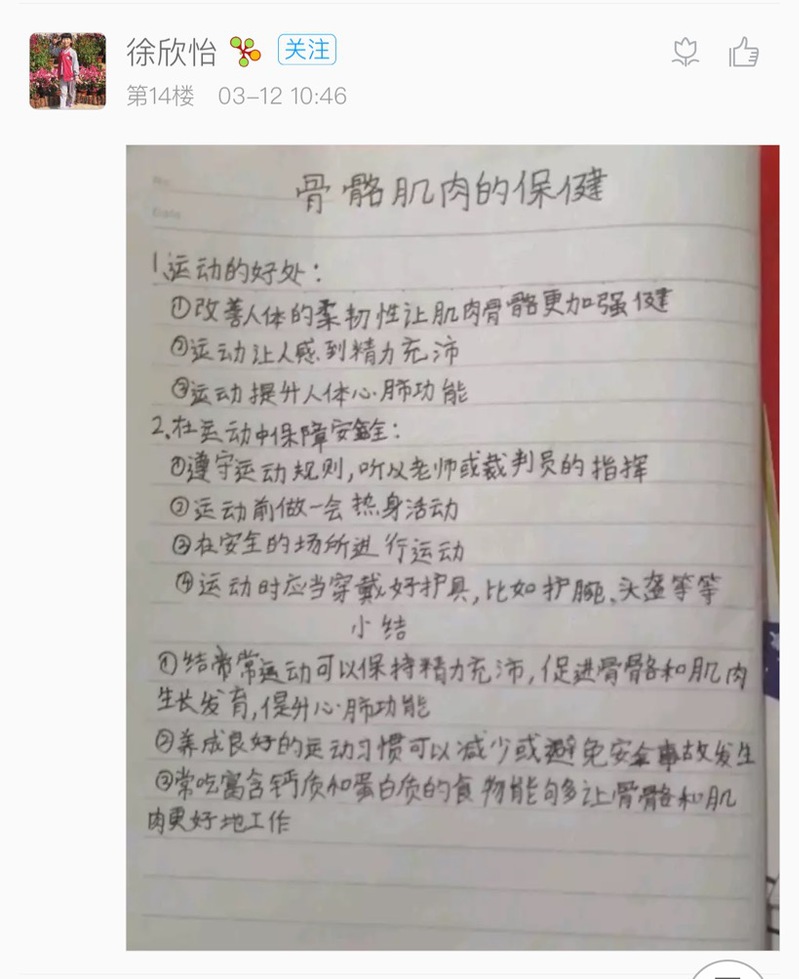 徐欣怡 关注
第14楼 03-12 10:46
骨骼肌肉的保健
1.运动的好处：
①改善人体的柔韧性让肌肉骨骼更加强健
②运动让人感到精力充沛
③运动提升人体心肺功能
2.在运动中保障安全：
①遵守运动规则,听从老师或裁判员的指挥
②运动前做一会热身活动
③在安全的场所进行运动
④运动时应当穿戴好护具,比如护腕、头盔等等
小结
①经常运动可以保持精力充沛,促进骨骼和肌肉
生长发育,提升心肺功能
②养成良好的运动习惯可以减少或避免安全事故发生
③常吃富含钙质和蛋白质的食物能够多让骨骼和肌
肉更好地工作